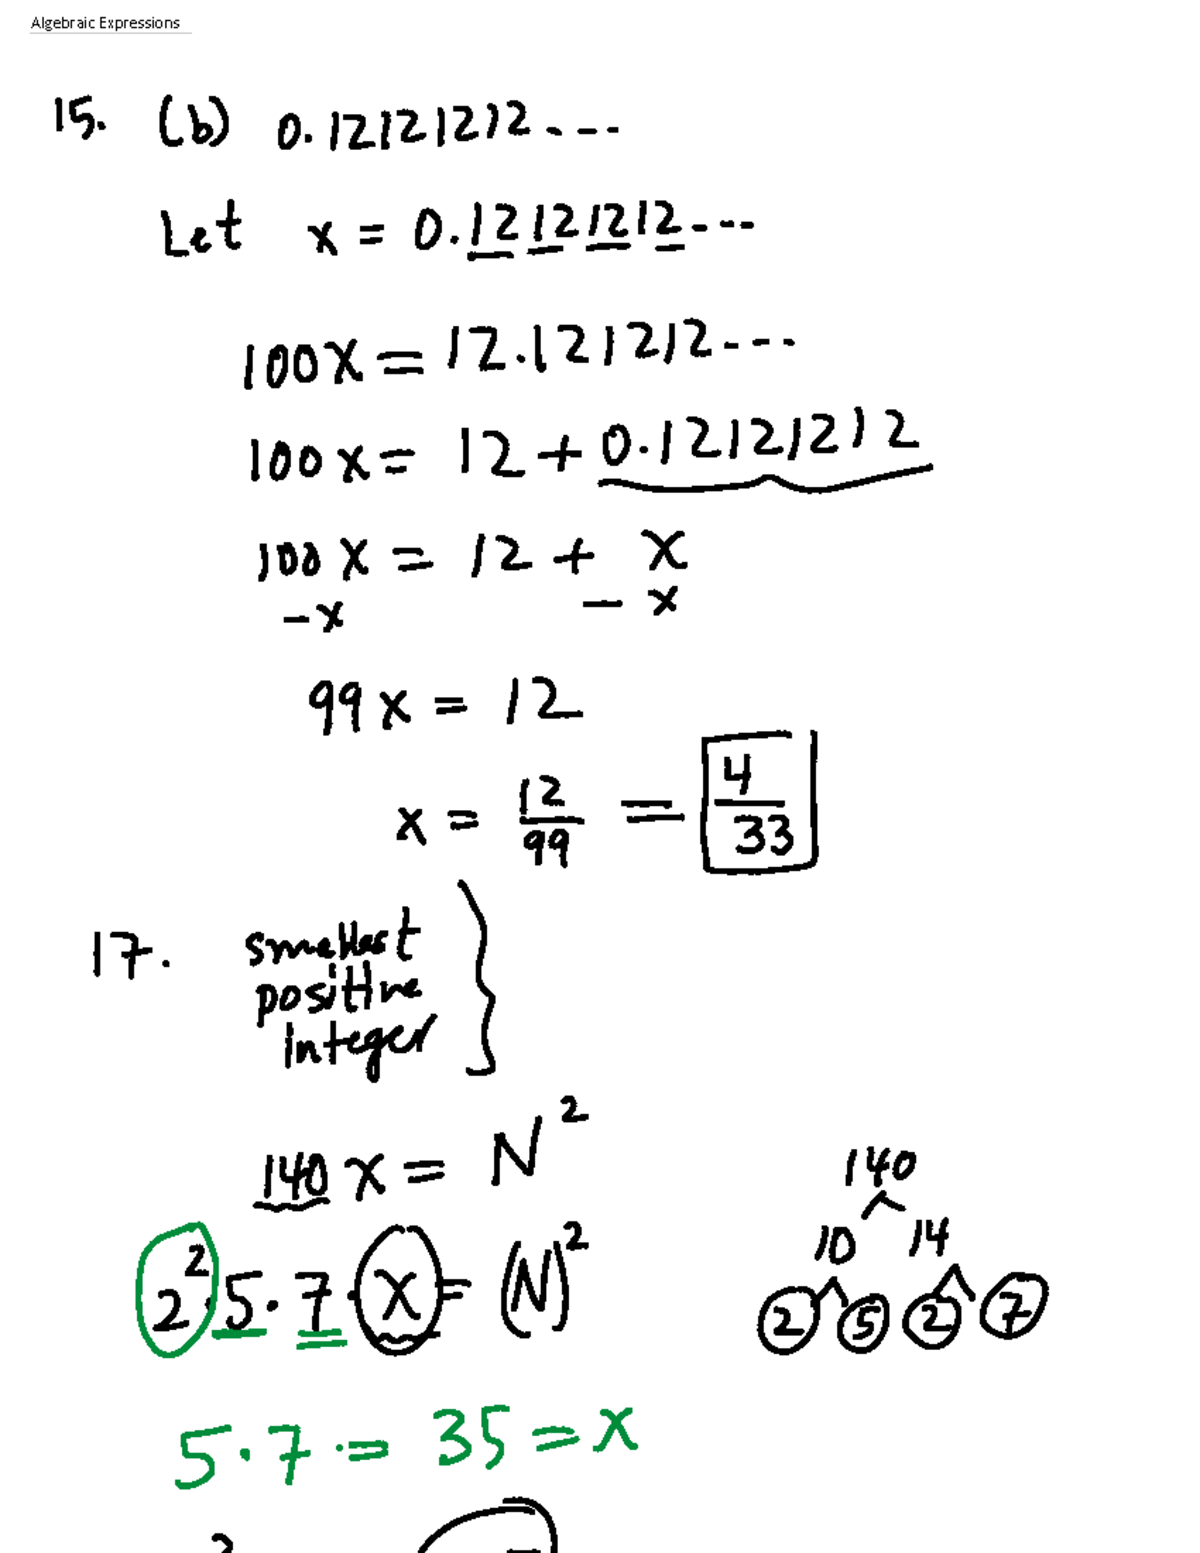 Algebraic Expressions
15. (b) 0.12121212----
Let x = 0.12121212---
100x = 12.121212---
100x = 12 + 0.12121212
100x = 12 + x
-x - x
99x = 12
x = 12/99 = 4/33
17. smallest
positive
integer
140x = N²
2²·5·7·x = (N)²
140
10 14
2 5 2 7
5·7·= 35 = x